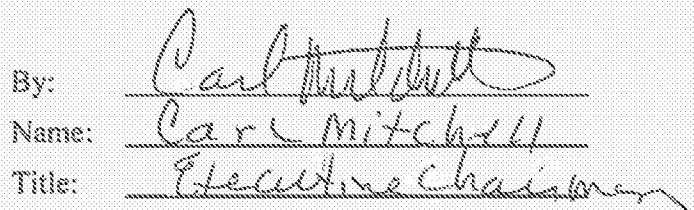 By: Carl Mitchell
Name: Carl Mitchell
Title: Executive Chairman